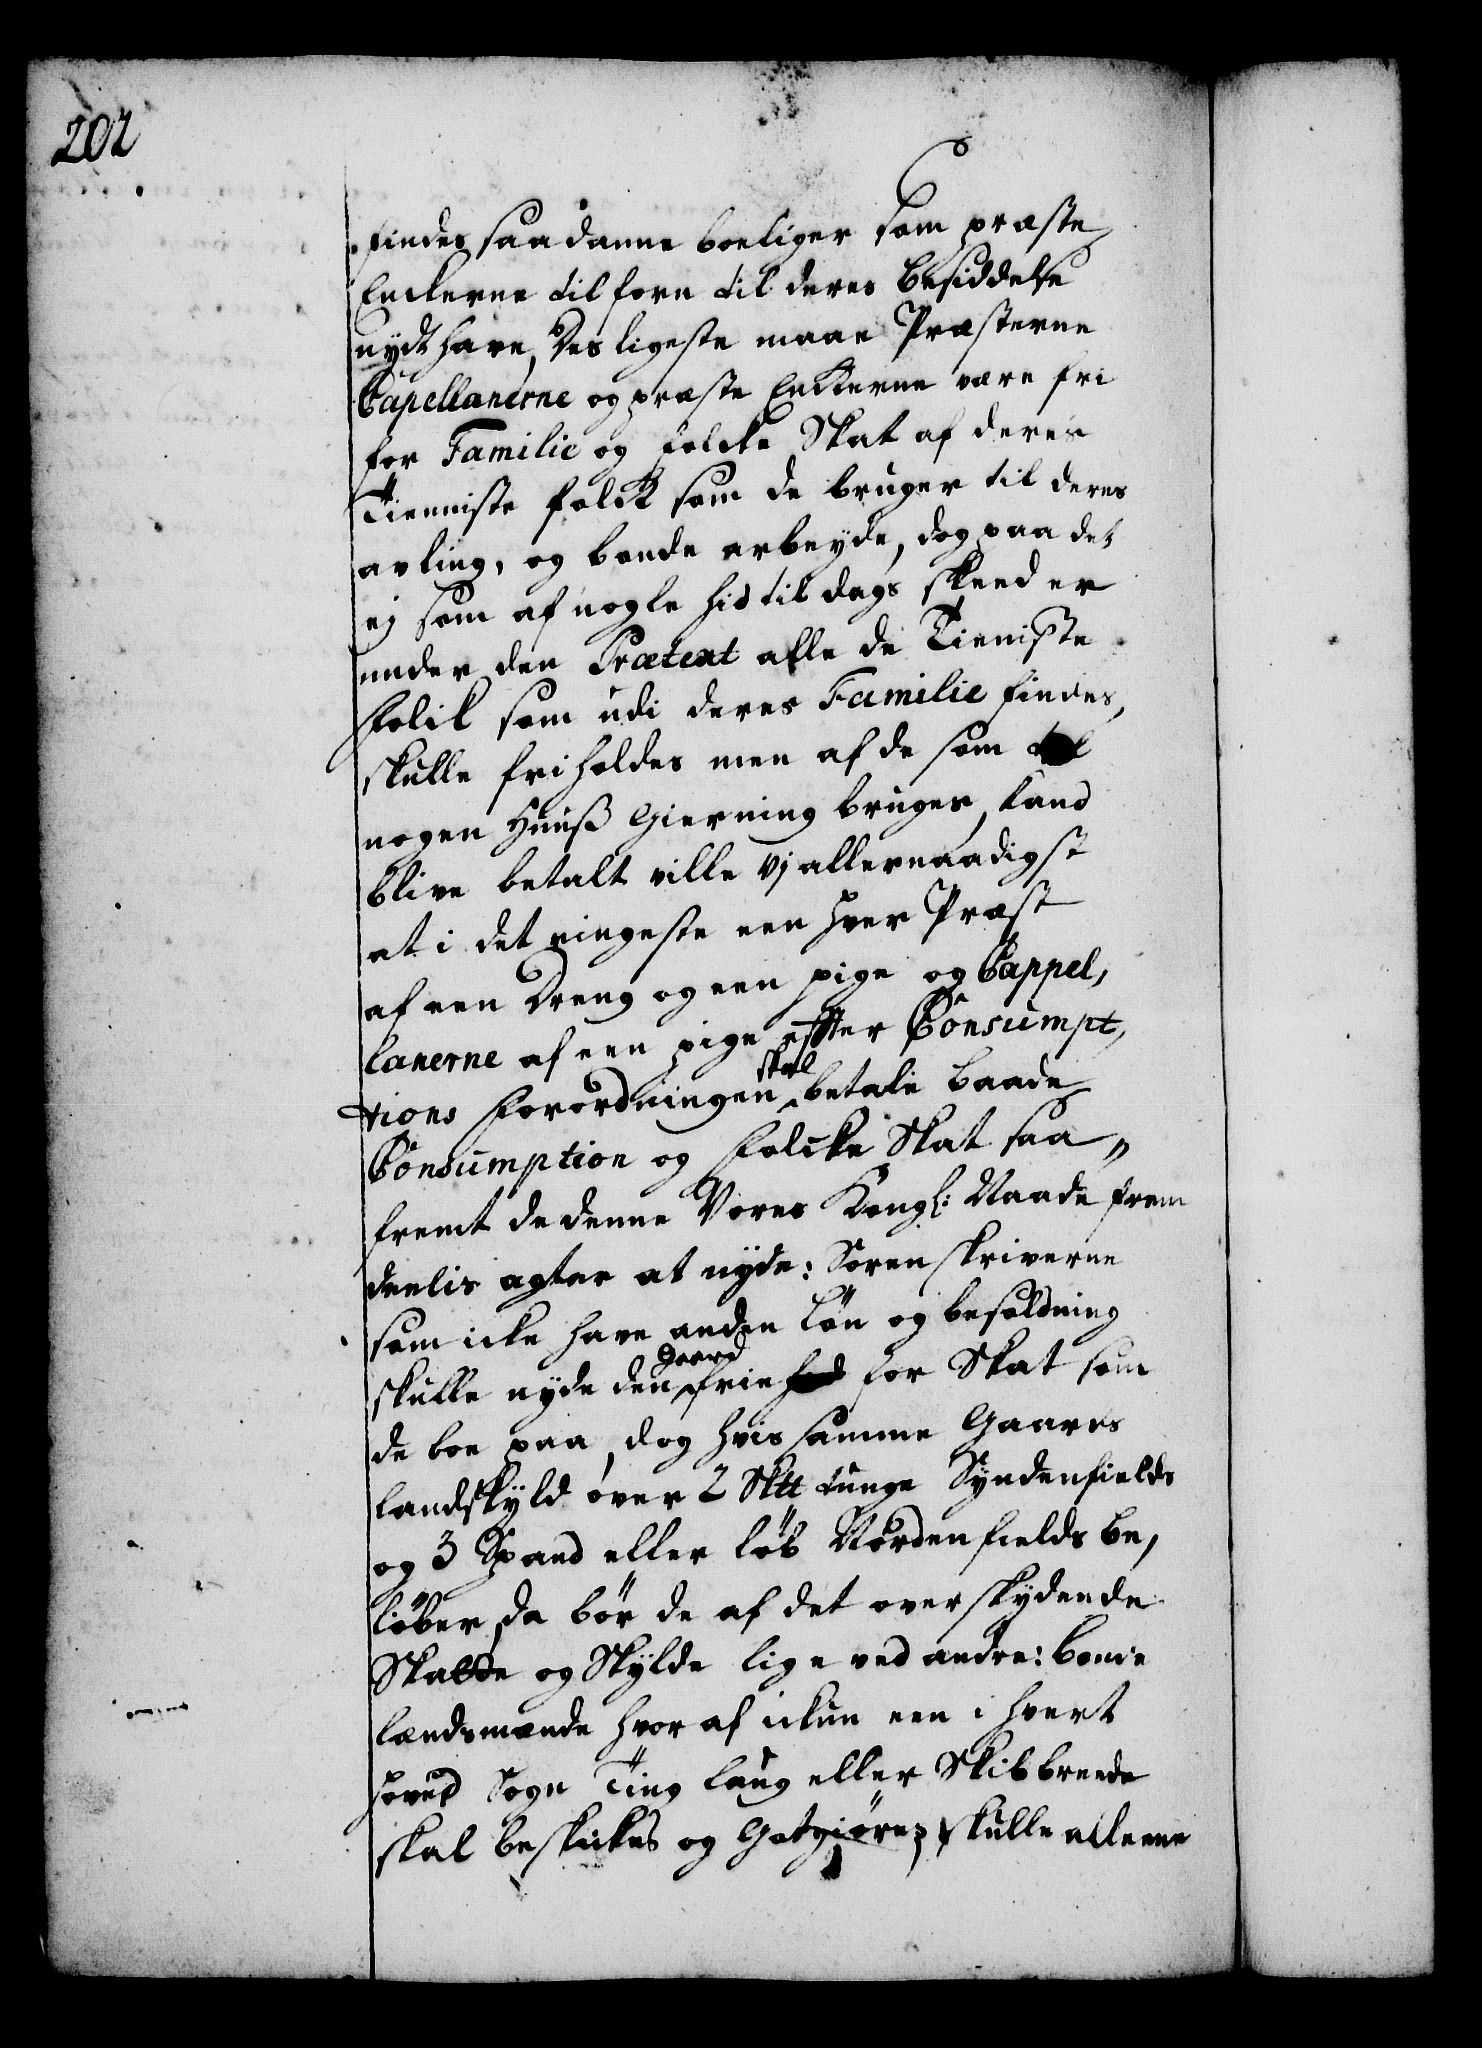 202
findes saadanne boeliger som præste
Enckerne tilforn til deres besiddelse
nydt have, Des ligeste maae Præsterne
Capellanerne og præste Enckerne være fri
for Familie og folcke Skat af deres
Tienniste folck som de bruger til deres
avling, og bonde arbeyde, dog paa det
ej som af nogle hid til dags skeed er
under den Prætext alle de Tieniste
Folck som udi deres Familie findes,
skulle friholdes men af de som til
nogen Huuß Gierning bruges, kand
blive betalt ville Vj allernaadigst
at i det ringeste een hver Præst
af een Dreng og een pige og Cappel,
lanerne af een pige effter Consumpt,
tions Forordningen skal betale baade
Consumption og Folcke Skat saa„
fremt de denne Vores Kongl: Naade frem
deelis agter at nyde: Sorenskriverne
som icke have anden løn og besoldning
skulle nyde den Gaard frie for Skat som
de boe paa, dog hvis samme Gaares
landskyld over 2 Sktt tunge Syndenfields
og 3 Spand eller løb Nordenfields be,
løber, da bør de af det overskydende
Skatte og Skylde lige ved andre: bonde
lændsmænde hvor af ickun een i hvert
hoved Sogn Ting laug eller Skibbrede
skal beskickes og Gotgiøres, skulle alleene